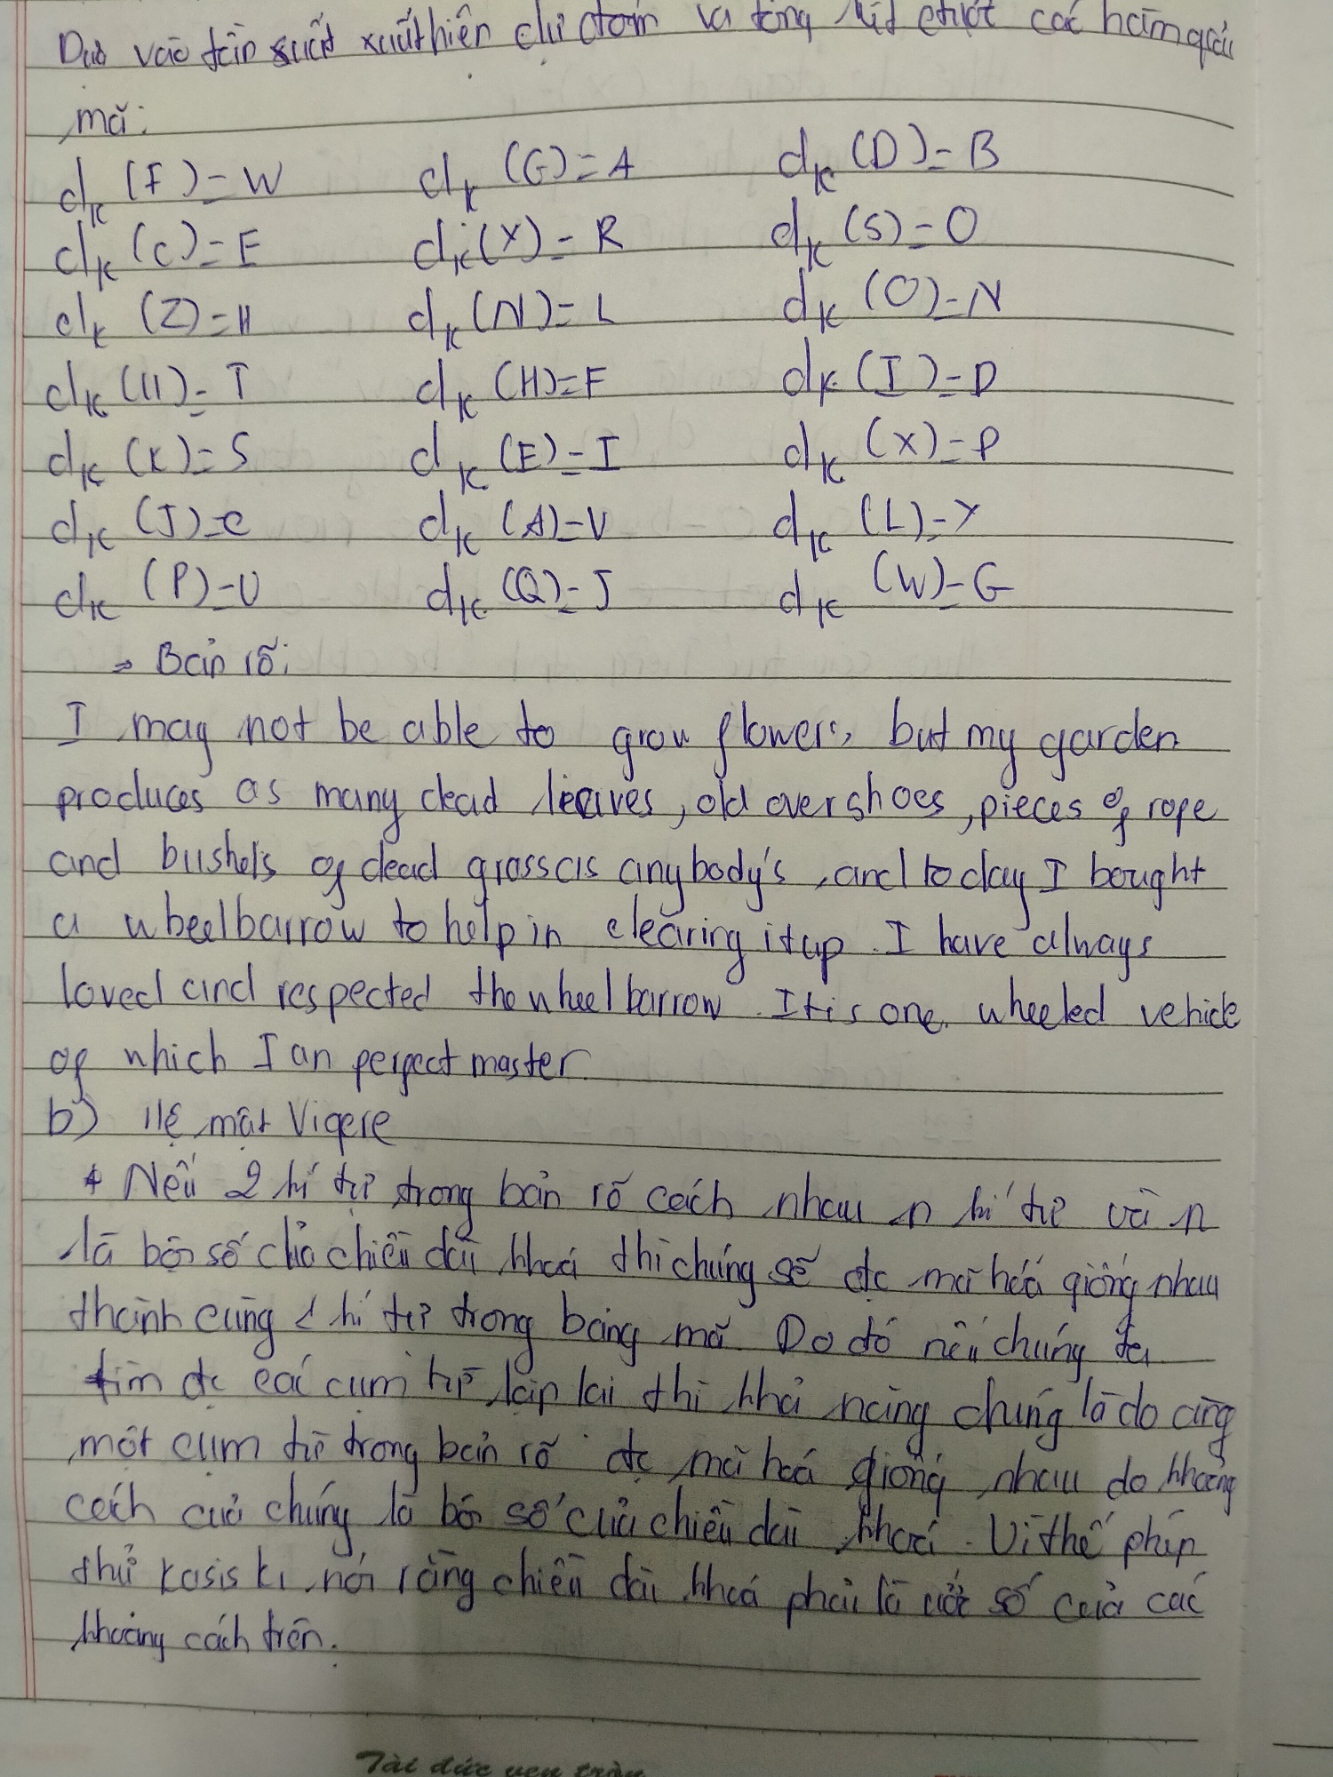 Dựa vào tần suất xuất hiện chữ đoán và từng kết các hàm giải
mã:
dK (F) = W dK (G) = A dK (D) = B
dK (C) = E dK (Y) = R dK (S) = O
dK (Z) = H dK (N) = L dK (O) = N
dK (U) = T dK (H) = F dK (I) = D
dK (K) = S dK (E) = I dK (X) = P
dK (J) = C dK (A) = V dK (L) = Y
dK (P) = U dK (Q) = J dK (W) = G
⇒ Bản rõ:
I may not be able to grow flowers, but my garden
produces as many dead leaves, old overshoes, pieces of rope
and bushels of dead grass as anybody's, and today I bought
a wheelbarrow to help in clearing it up. I have always
loved and respected the wheelbarrow. It is one wheeled vehicle
of which I an perfect master.
b) Hệ mật Vigere
+ Nếu 2 kí tự trong bản rõ cách nhau n kí tự và n
là bội số của chiều dài khoá thì chúng sẽ đc mã hoá giống nhau
thành cùng 1 kí tự trong bảng mã. Do đó nếu chúng ta
tìm đc các cụm từ lặp lại thì khả năng chúng là do cùng
một cụm từ trong bản rõ đc mã hoá giống nhau do khoảng
cách của chúng là bội số của chiều dài khoá. Vì thế phép
thử Kasiski nói rằng chiều dài khoá phải là ước số của các
khoảng cách trên.
Tài đức vẹn toàn